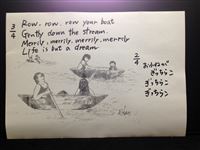 3/4
Row, row, row your boat
Gently down the stream.
Merrily, merrily, merrily, merrily
Life is but a dream.
2/4
おふねが
ぎっちらこ
ぎっちらこ